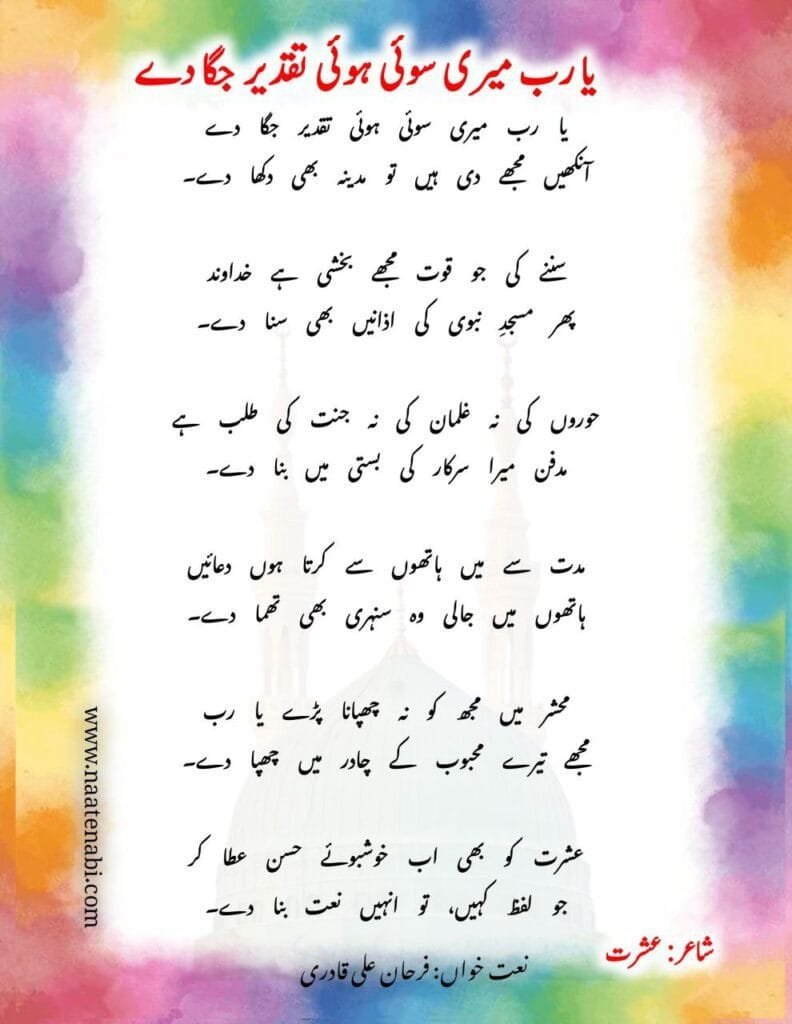 یا رب میری سوئی ہوئی تقدیر جگا دے
یا رب میری سوئی ہوئی تقدیر جگا دے
آنکھیں مجھے دی ہیں تو مدینہ بھی دکھا دے۔
سننے کی جو قوت مجھے بخشی ہے خداوند
پھر مسجدِ نبوی کی اذانیں بھی سنا دے۔
حوروں کی نہ غلمان کی نہ جنت کی طلب ہے
مدفن میرا سرکار کی بستی میں بنا دے۔
مدت سے میں ہاتھوں سے کرتا ہوں دعائیں
ہاتھوں میں جالی وہ سنہری بھی تھما دے۔
محشر میں مجھ کو نہ چھپانا پڑے یا رب
مجھے تیرے محبوب کے چادر میں چھپا دے۔
عشرت کو بھی اب خوشبوئے حسن عطا کر
جو لفظ کہیں، تو انہیں نعت بنا دے۔
شاعر: عشرت
نعت خواں: فرحان علی قادری
www.naatenabi.com